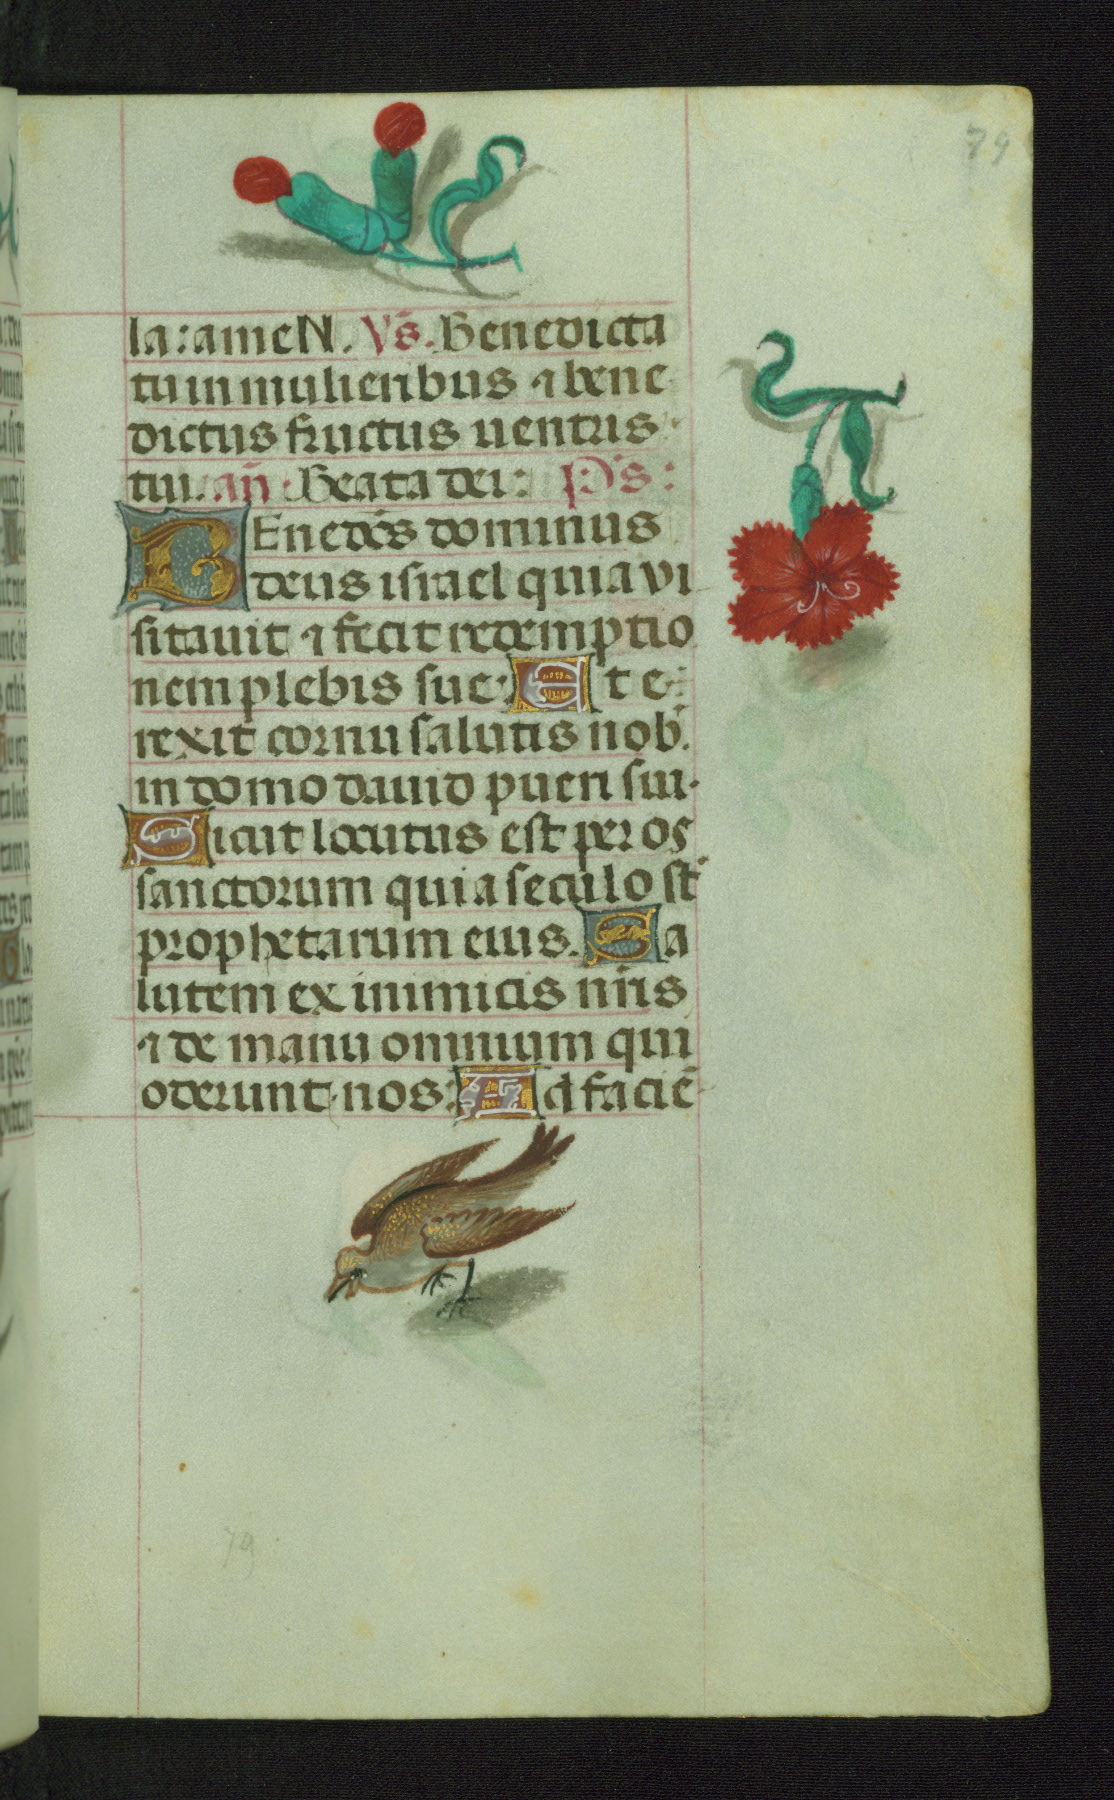 79
la: ameN. Vs̃. Benedicta
tu in mulieribus ⁊ bene
dictus fructus uentris
tui. añ. Beata dei: Ps:
BEnedc̃s dominus
deus israel quia vi
sitauit ⁊ fecit redemptio
nem plebis sue: Et e
rexit cornu salutis nob̃.
in domo dauid pueri sui.
Sicut locutus est per os
sanctorum qui a seculo st̃
prophetarum eius. Sa
lutem ex inimicis nr̃is
⁊ de manu omnium qui
oderunt nos: Ad faciẽ
79